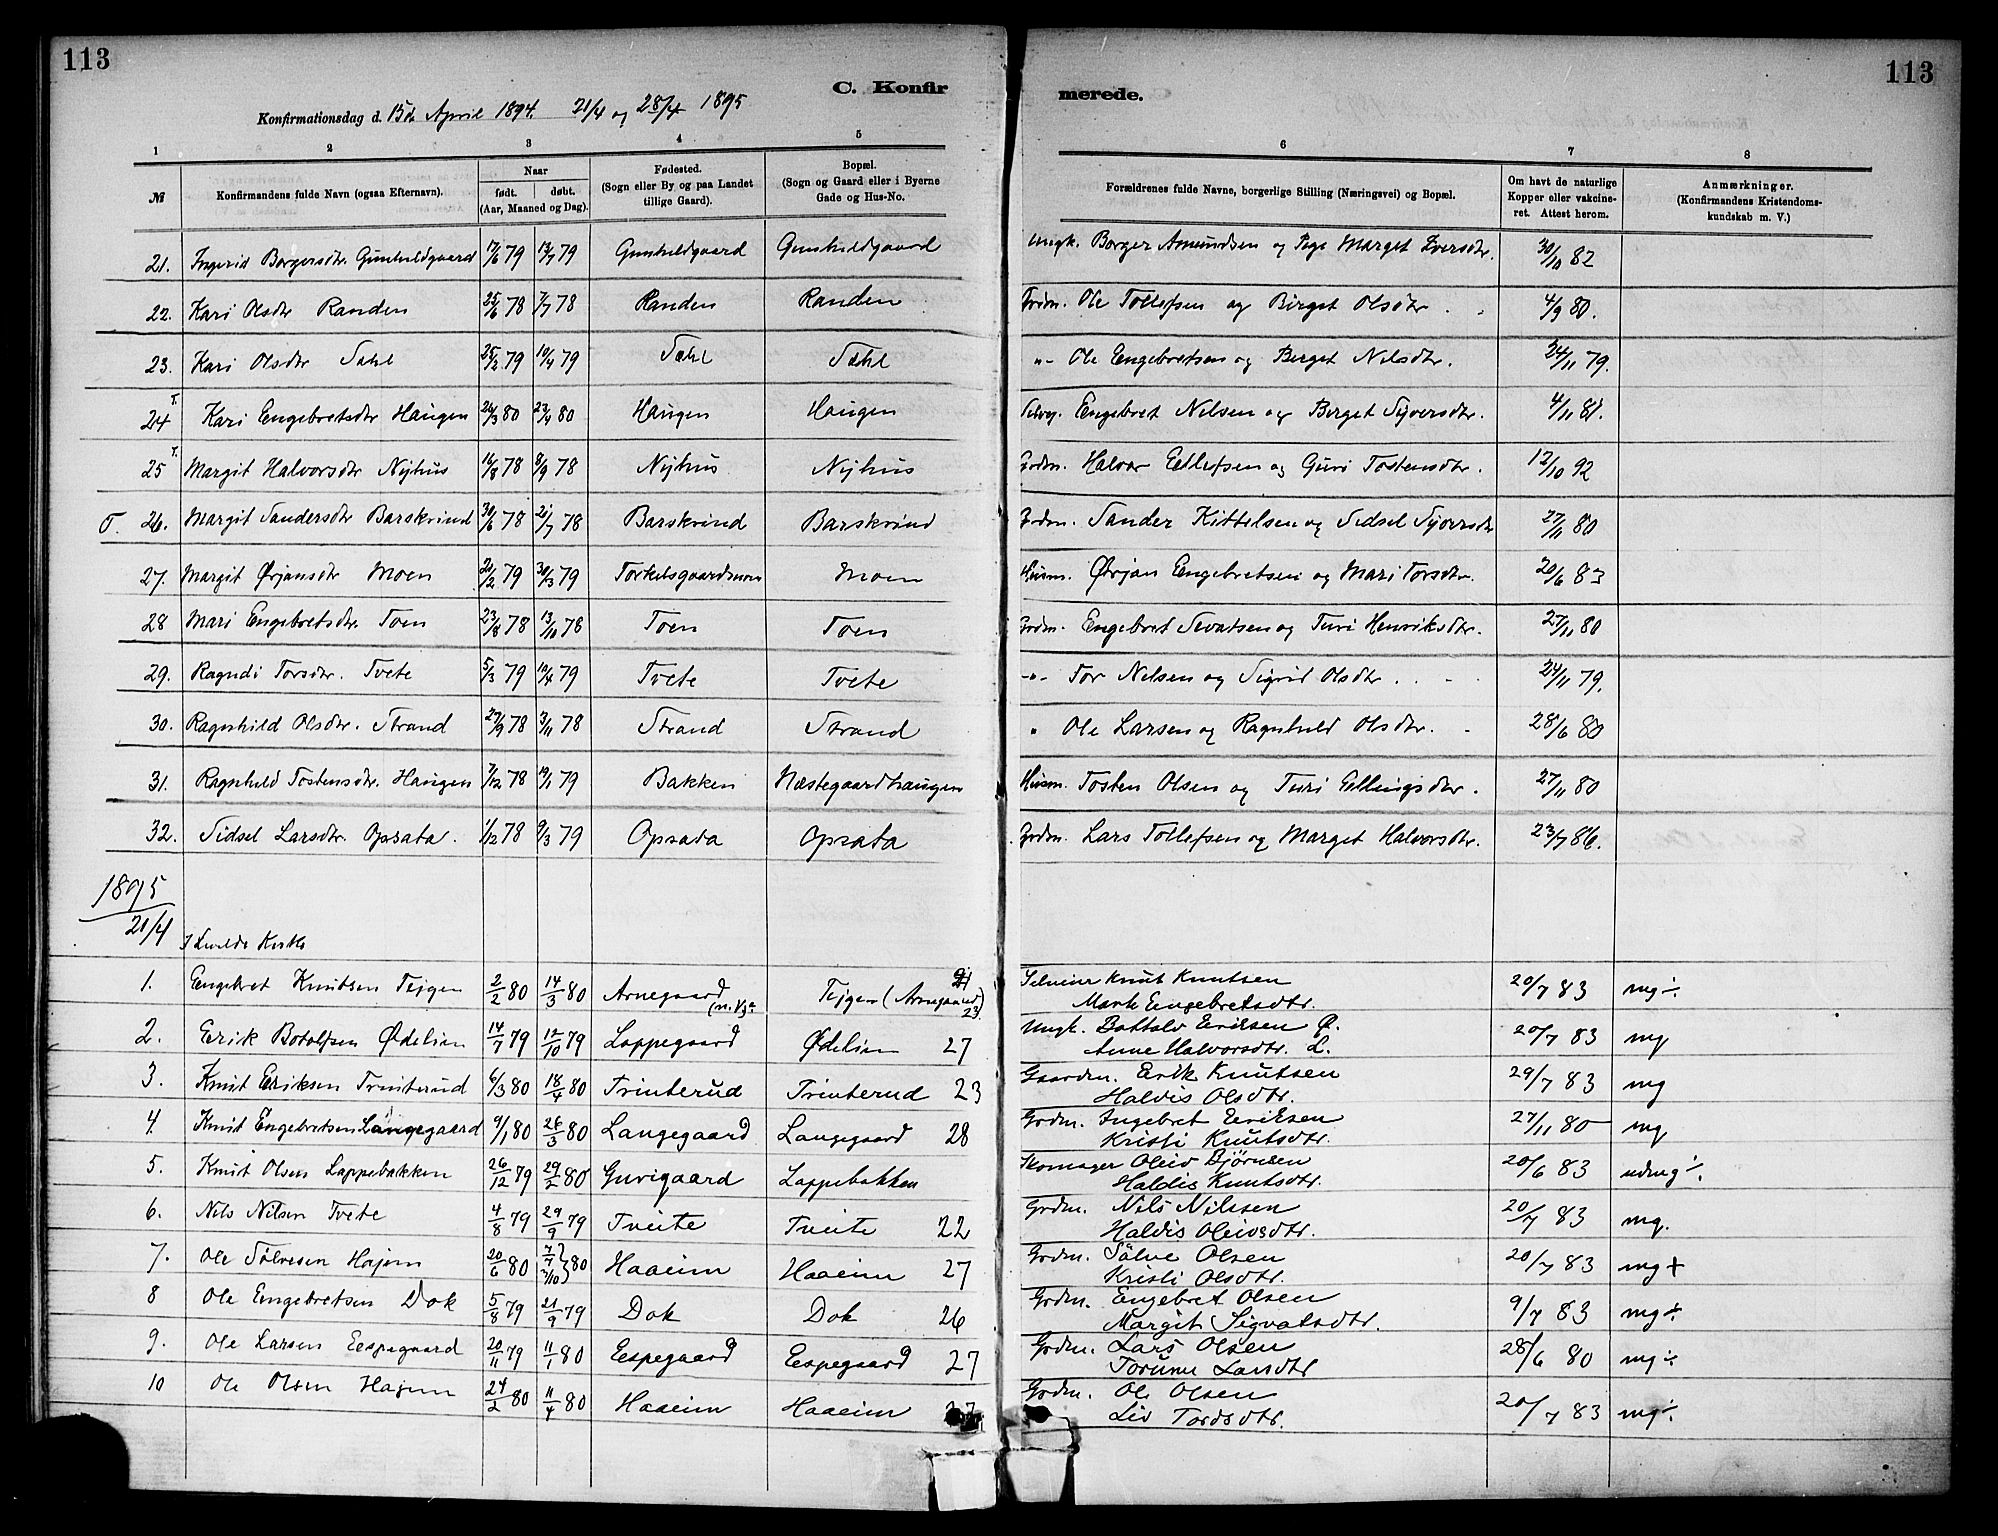 113
113
C. Konfirmerede.
Konfirmationsdag d. 15de April 1894. 21/4 og 28/4 1895
1 2 3 4 5 6 7 8
№ Konfirmandens fulde Navn (ogsaa Efternavn). Naar født. døbt. (Aar, Maaned og Dag). Fødested. (Sogn eller By og paa Landet tillige Gaard). Bopæl. (Sogn og Gaard eller i Byerne Gade og Hus-No. Forældrenes fulde Navne, borgerlige Stilling (Næringsvei) og Bopæl. Om havt de naturlige Kopper eller vakcineret. Attest herom. Anmærkninger. (Konfirmandens Kristendomskundskab m. V.)
21. Ingerid Borgersdtr. Gunhuldgaard 17/6 79 13/7 79 Gunhuldgaard Gunhuldgaard Ungk. Borger Amundsen og Pige Marget Iversdtr. 30/10 82
22. Kari Olsdtr Randen 25/6 78 7/7 78 Randen Randen Grdm. Ole Tollefsen og Birget Olsdtr. 4/9 80.
23. Kari Olsdtr Sæhl 25/2 79 10/4 79 Sæhl Sæhl "- Ole Engebretsen og Berget Nilsdtr. 24/11 79.
24 T. Kari Engebretsdtr Haugen 26/3 80 23/4 80 Haugen Haugen Selvej. Engebret Nilsen og Berget Syversdtr. 4/11 81.
25 T. Margit Halvorsdtr Nyhus 16/8 78 8/9 78 Nyhus Nyhus Grdm. Halvor Eellefsen og Guri Tostensdtr. 12/10 92
T. 26. Margit Sandersdtr Barskrind 30/6 78 21/7 78 Barskrind Barskrind Grdm. Sander Kittelsen og Sidsel Syversdtr 27/11 80
27. Margit Ørjansdtr Moen 21/2 79 30/3 79 Torkelsgaardsmoen Moen Husm. Ørjan Engebretsen og Mari Torsdtr. 20/6 83
28 Mari Engebretsdtr. Toen 23/8 78 13/10 78 Toen Toen Grdm. Engebret Sevatsen og Turi Henriksdtr. 27/11 80
29. Ragndi Torsdtr. Tvete 5/3 79 10/4 79 Tvete Tvete -"- Tor Nilsen og Sigrid Olsdtr. 24/11 79.
30. Ragnhild Olsdtr. Strand 27/9 78 3/11 78 Strand Strand " Ole Larsen og Ragnhild Olsdtr. 28/6 80
31. Ragnhild Tostensdtr. Haugen 7/12 78 19/1 79 Bakken Næstegaardhaugen Husm. Tosten Olsen og Turi Ellingsdtr. 27/11 80
32. Sidsel Larsdtr. Opsata. 1/12 78 9/3 79 Opsata Opsata Grdm. Lars Tollefsen og Marget Halvorsdtr. 23/7 86.
1895
21/4
I Kirke
1. Engebret Knutsen Tejgen 2/2 80 14/3 80 Arnegaard Tejgen (Arnegaard) 23 Knut Knutsen 20/7 83 mg ÷
Engebretsdtr.
2. Erik Botolfsen Ødelien 14/7 79 12/10 79 Loppegaard Ødelien 27 Ungk. Bottolv Eriksen Ø. 20/7 83 mg
Anne Halvorsdtr. L.
3. Knut Eriksen Trinterud 6/3 80 18/4 80 Trinterud Trinterud 23 Gaardm. Erik Knutsen 29/7 83 mg
Haldis Olsdtr.
4. Knut Engebretsen Langegaard 9/1 80 26/3 80 Langegaard Langegaard 28 Grdm. Ingebret Eeriksen 27/11 80 mg
Kristi Knutsdtr.
5. Knut Olsen Lappebakken 26/12 79 29/2 80 Guvigaard Lappebakken Skomager Oleiv Bjørnsen 20/6 83 udmg ÷.
Haldis Knutsdtr.
6. Nils Nilsen Tvete 4/8 79 29/9 79 Tveite Tveite 22 Grdm. Nils Nilssen 20/7 83 mg.
Haldis Oleivsdtr.
7. Ole Sølvesen Hajem 20/6 80 7/7 2/10} 80 Haaeim Haaeim 27 Grdm. Sölve Olsen 20/7 83 mg +
Kristi Olsdtr.
8 Ole Engebretsen Dok 5/8 79 21/9 79 Dok Dok 26 Grdm. Engebret Olsen 9/7 83 mg ÷
Margit Sigvatsdtr.
9. Ole Larsen Eespegaard 20/11 79 11/1 80 Eespegaard Eespegaard 27 Grdm. Lars Olsen 28/6 80 mg ÷
Torunn
10 Ole Olsen Hajem 24/2 80 11/4 80 Haaeim Haaeim 27 Grdm. Ole Olsen 20/7 83 mg ÷
Liv Tordsdtr.